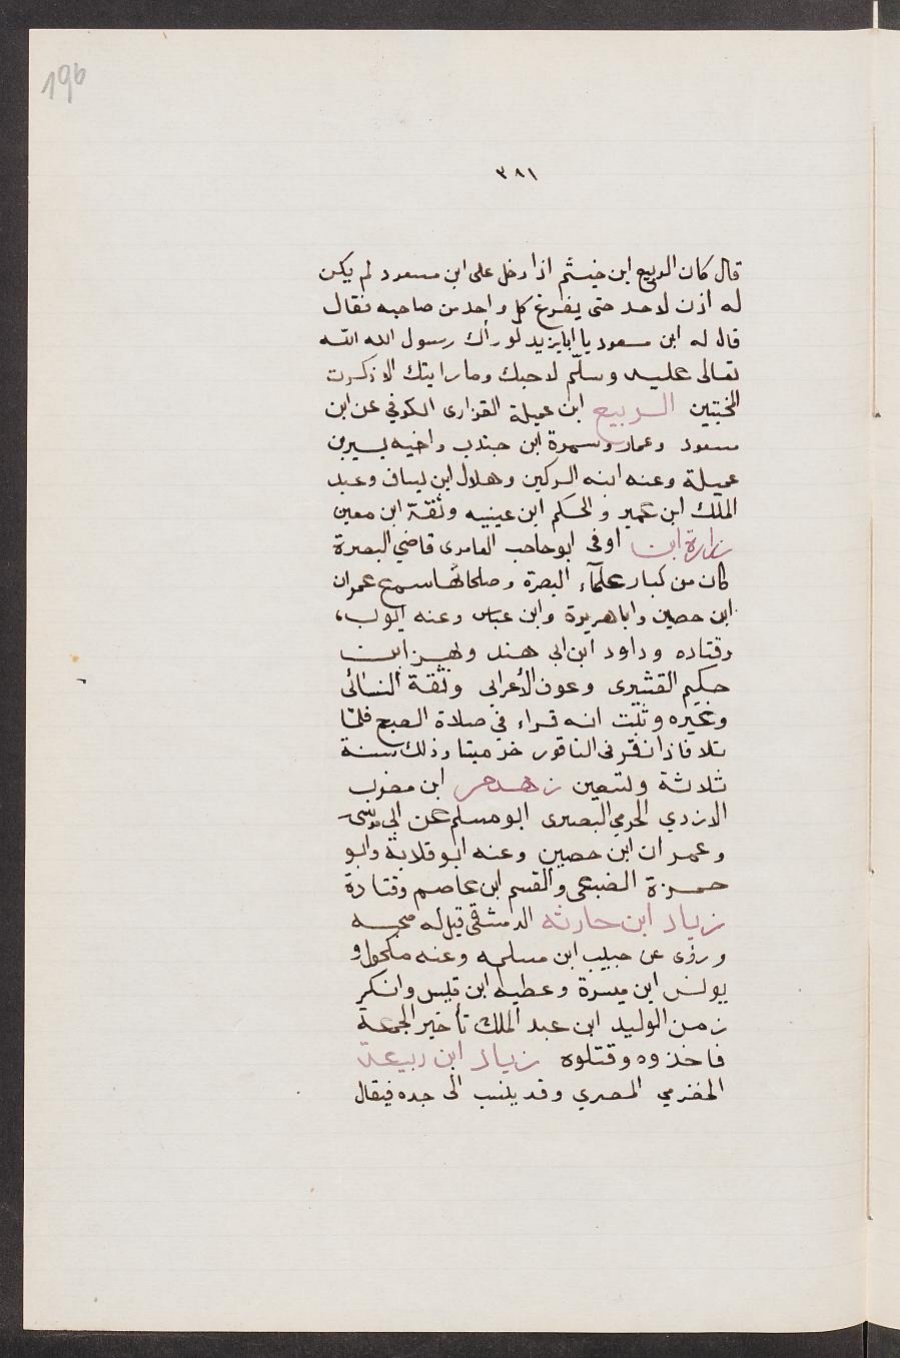 196
٣٨١
قال كان الربيع ابن خيثم اذا دخل على ابن مسعود لم يكن
له اذن لاحد حتى يفرغ كل واحد من صاحبه فقال
قال له ابن مسعود يا ابا يزيد لو رأك رسول الله الله
تعالى عليه وسلّم لاحبك وما رايتك الا ذكرت
المخبتين الربيع ابن عميلة الفزارى الكوفي عن ابن
مسعود وعمار وسمرة ابن جندب واخيه يسير بن
عميلة وعنه ابنه الركين وهلال ابن يساف وعبد
الملك ابن عمير والحكم ابن عينيه وثقة ابن معين
زرارة ابن اوفى ابو حاجب العامرى قاضي البصرة
كان من كبار علمآء البصرة وصلحائها سمع عمران
ابن حصين وابا هريرة وابن عباس وعنه ايوب،
وقتاده وداود ابن ابى هند وبهز ابن
حكيم القشيرى وعوف الأعرابى وثقة النسائى
وغيره وثبت انه قراء في صلاة الصبح فلمّا
تلا فاذا نقر فى الناقور خر ميتا وذلك سنة
ثلاثة وتسعين زهدم ابن مضرب
الازدي الجرمي البصرى ابو مسلم عن ابى موسى
وعمران ابن حصين وعنه ابو قلابة وابو
حمزة الضبعى والقسم ابن عاصم وقتادة
زياد ابن حارثه الدمشقى قيل له صحبه
وروى عن حبيب ابن مسلمه وعنه مكحول و
يونس ابن ميسرة وعطيه ابن قيس وانكر
زمن الوليد ابن عبد الملك تأخير الجمعة
فاخذوه وقتلوه زياد ابن ربيعة
الحضرمي المصري وقد ينسب الى جده فيقال